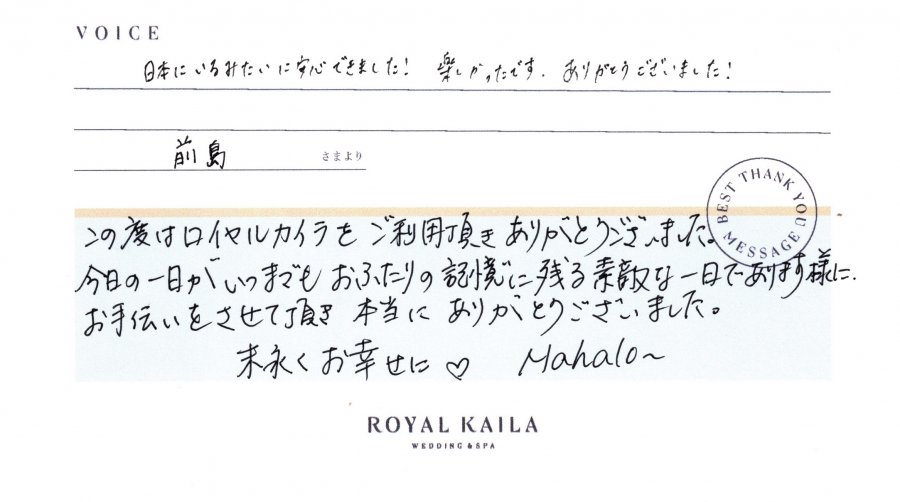 VOICE
日本にいるみたいに安心できました! 楽しかったです. ありがとうございました!
前島 さまより
BEST THANK YOU MESSAGE
この度はロイヤルカイラをご利用頂きありがとうございました。
今日の一日がいつまでもおふたりの記憶に残る素敵な一日であります様に.
お手伝いをさせて頂き 本当に ありがとうございました。
末永くお幸せに♡ Mahalo~
ROYAL KAILA
WEDDING & SPA